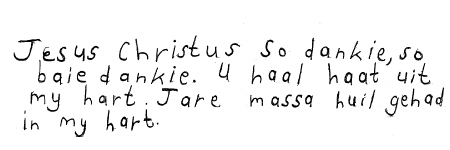 Jesus Christus so dankie, so
baie dankie. U haal haat uit
my hart. Jare massa huil gehad
in my hart.